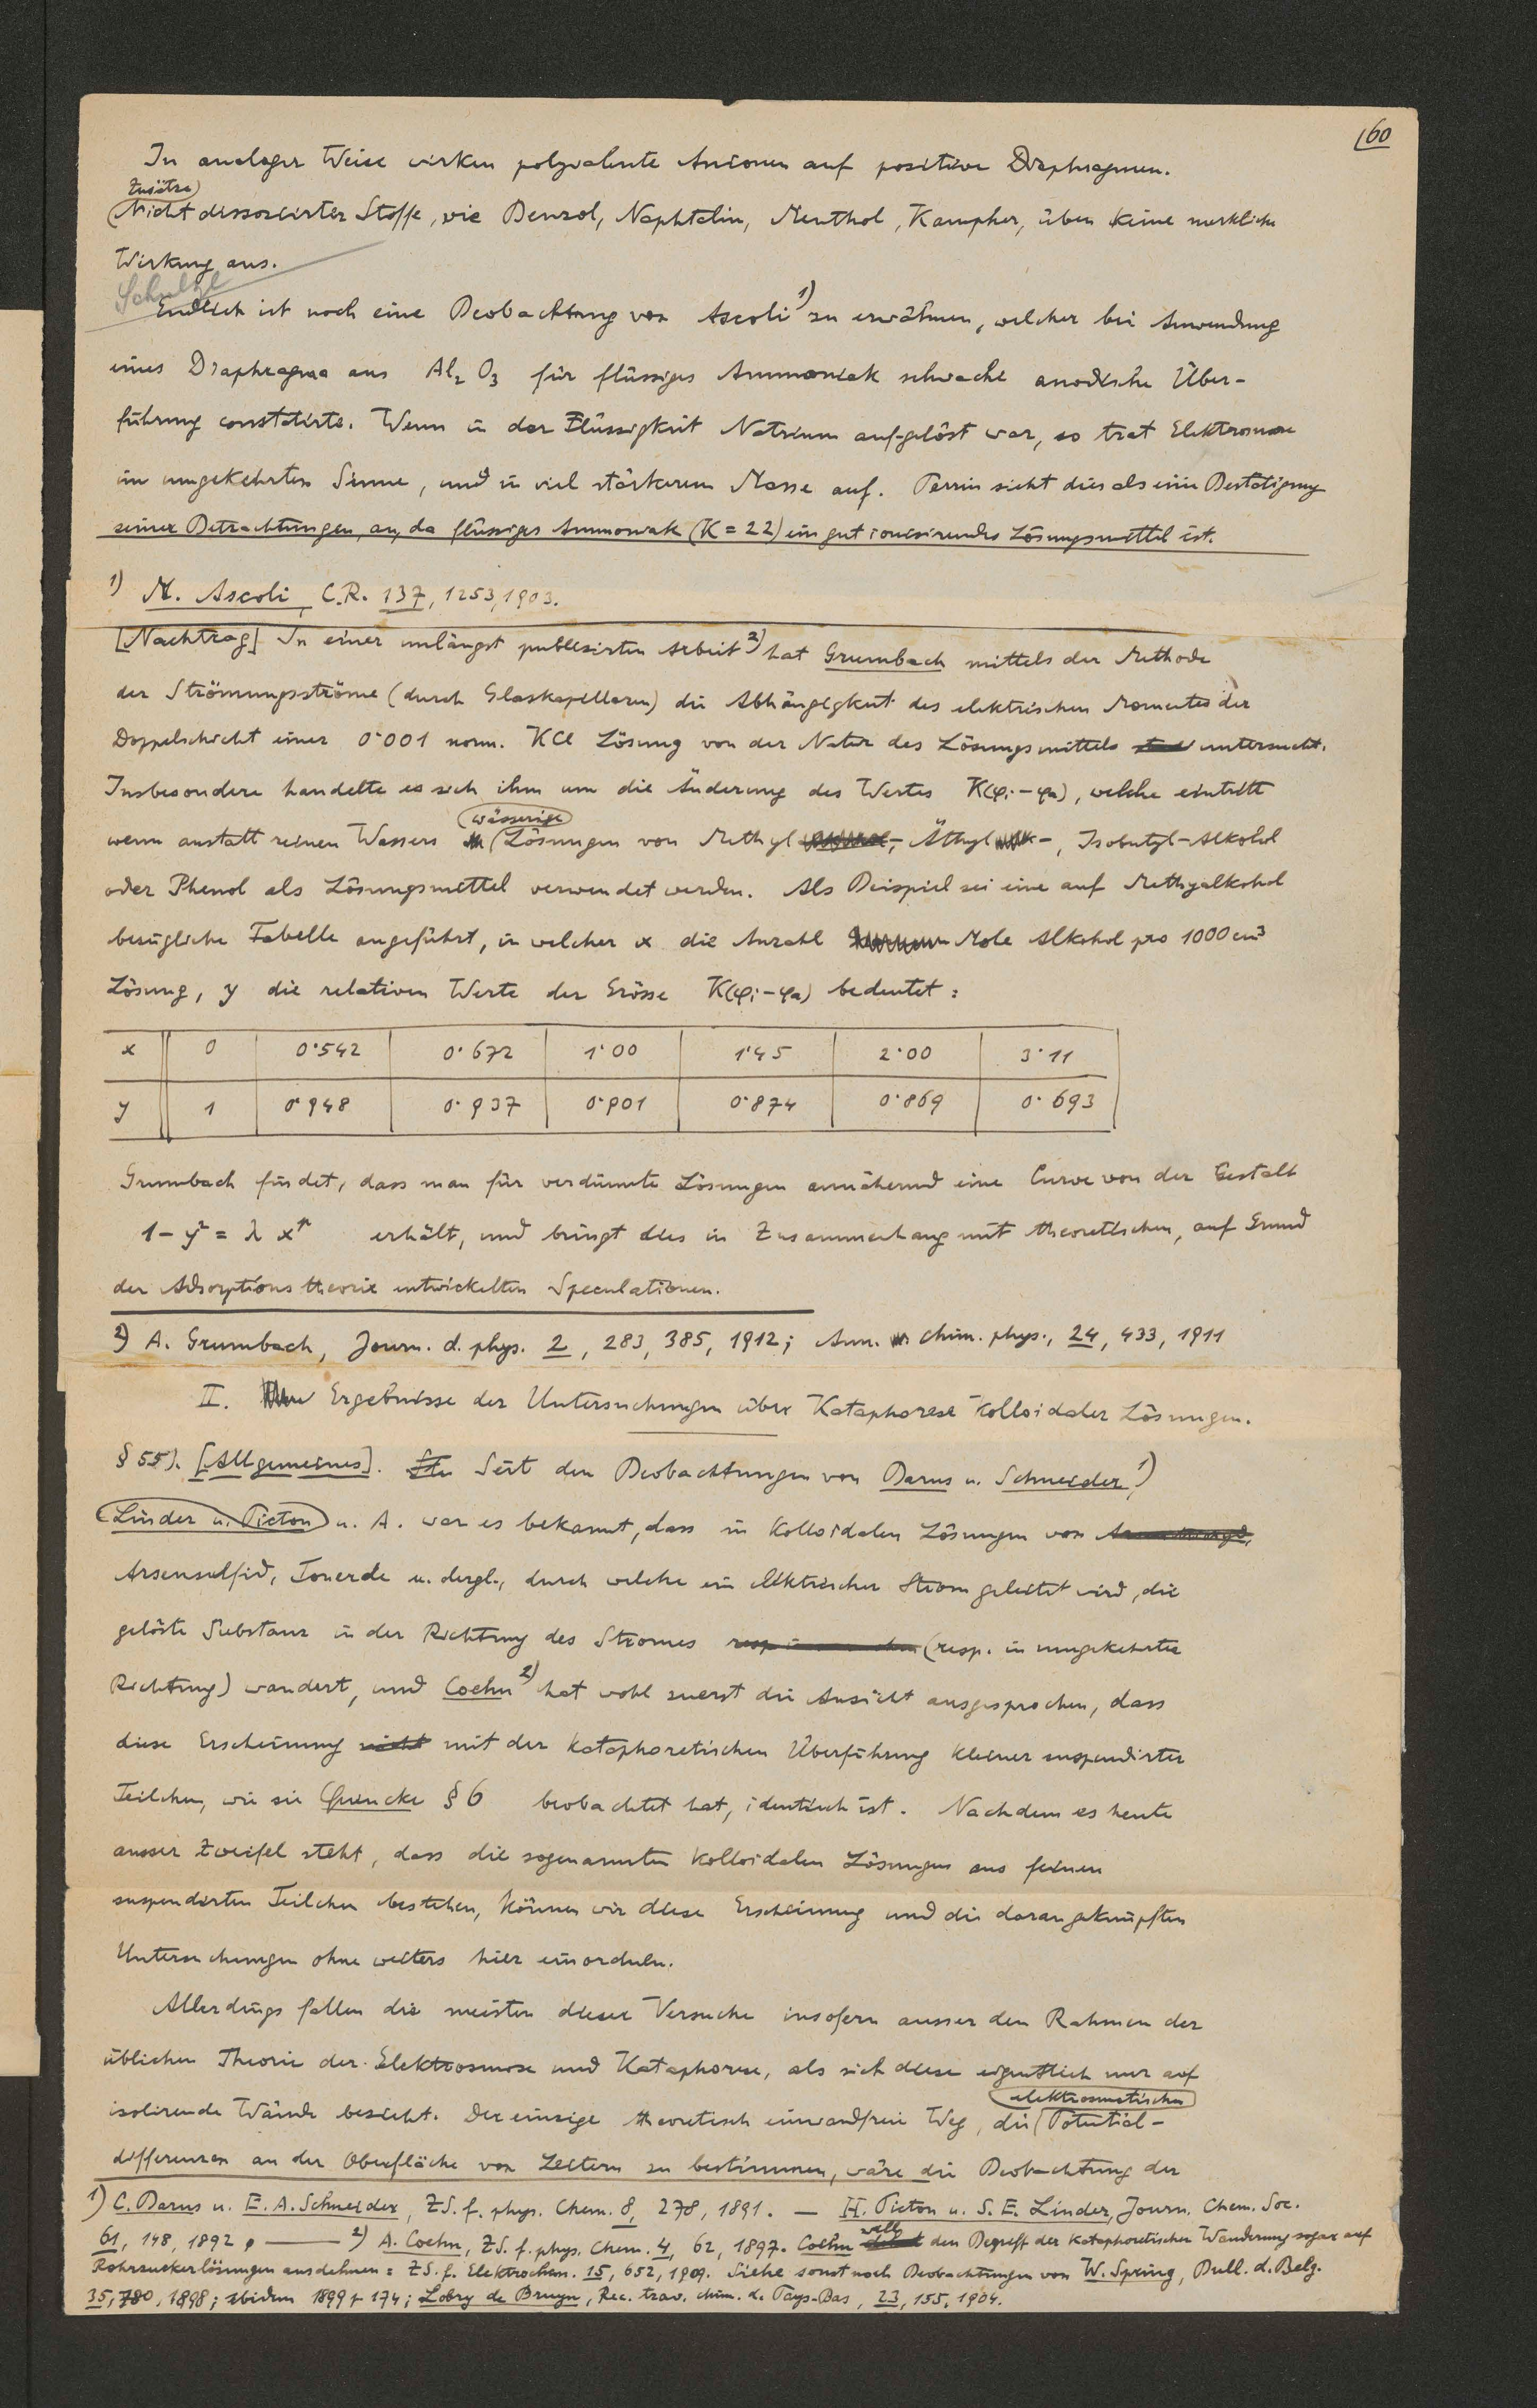 60
In analoger Weise wirken polyvalente Anionen auf positive Diaphragmen.
Zusätze
Nicht dissoziirter Stoffe, wie Benzol, Naphtalin, Menthol, Kampher, üben keine merkliche
Wirkung aus.
Schulze
Endlich ist noch eine Beobachtung von Ascoli 1) zu erwähnen, welcher bei Anwendung
eines Diaphragma aus Al2 O3 für flüssiges Ammoniak schwache anodische Über-
führung constatirte. Wenn in der Flüssigkeit Natrium aufgelöst war, so trat Elektrosmose
im umgekehrten Sinne, und in viel stärkerem Masse auf. Perrin sieht dies als eine Bestätigung
seiner Betrachtungen an, da flüssiges Ammoniak (K = 22) ein gut ionisirendes Lösungsmittel ist.
1) M. Ascoli, C.R. 137, 1253, 1903.
[Nachtrag] In einer unlängst publizirten Arbeit 2) hat Grumbach mittels der Methode
der Strömungsströme (durch Glaskapillaren) die Abhängigkeit des elektrischen Momentes der
Doppelschicht einer 0·001 norm. KCl Lösung von der Natur des Lösungsmittels untersucht.
Insbesondere handelte es sich ihm um die Änderung des Wertes K(φi – φa), welche eintritt
wässerige
wenn anstatt reinen Wassers Lösungen von Methyl-, Äthyl-, Isobutyl-Alkohol
oder Phenol als Lösungsmittel verwendet werden. Als Beispiel sei eine auf Methyalkohol
bezügliche Tabelle angeführt, in welcher x die Anzahl Mole Alkohol pro 1000 cm3
Lösung, y die relativen Werte der Grösse K(φi – φa) bedeutet:
x 0 0·542 0·672 1·00 1·45 2·00 3·11
y 1 0·948 0·937 0·901 0·874 0·869 0·693
Grumbach findet, dass man für verdünnte Lösungen annähernd eine Curve von der Gestalt
erhält, und bringt dies in Zusammenhang mit theoretischen, auf Grund
der Adsorptionstheorie entwickelten Speculationen.
2) A. Grumbach, Journ. d. phys. 2, 283, 385, 1912; Ann. chim. phys., 24, 433, 1911
II. Ergebnisse der Untersuchungen über Kataphorese kolloidaler Lösungen.
§ 55). [Allgemeines]. Seit den Beobachtungen von Barus u. Schneider 1),
Linder u. Picton u. A. war es bekannt, dass in kolloidalen Lösungen von
Arsensulfid, Tonerde u. dergl., durch welche ein elektrischer Strom geleitet wird, die
gelöste Substanz in der Richtung des Stromes (resp. in umgekehrter
Richtung) wandert, und Coehn 2) hat wohl zuerst die Ansicht ausgesprochen, dass
diese Erscheinung nicht mit der kataphoretischen Überführung kleiner suspendirter
Teilchen, wie sie Quincke § 6 beobachtet hat, identisch ist. Nachdem es heute
ausser Zweifel steht, dass die sogenannten kolloidalen Lösungen aus feinen
suspendirten Teilchen bestehen, können wir diese Erscheinung und die daran geknüpften
Untersuchungen ohne weiters hier einordnen.
Allerdings fallen die meisten dieser Versuche insofern ausser den Rahmen der
üblichen Theorie der Elektrosmose und Kataphorese, als sich diese eigentlich nur auf
elektrosmotischen
isolirende Wände bezieht. Der einzige theoretisch einwandfreie Weg, die Potential-
differenzen an der Oberfläche von Leitern zu bestimmen, wäre die Beobachtung der
1) C. Barus u. E. A. Schneider, ZS. f. phys. Chem. 8, 278, 1891. — H. Picton u. S. E. Linder, Journ. Chem. Soc.
will
61, 148, 1892. — 2) A. Coehn, ZS. f. phys. Chem. 4, 62, 1897. Coehn den Begriff der kataphoretischen Wanderung sogar auf
Rohrzuckerlösungen ausdehnen: ZS. f. Elektrochem. 15, 652, 1909. Siehe sonst noch Beobachtungen von W. Spring, Bull. d. Belg.
35, 780, 1898; ibidem 1899 p 174; Lobry de Bruyn, Rec. trav. chim. d. Pays-Bas, 23, 155, 1904.